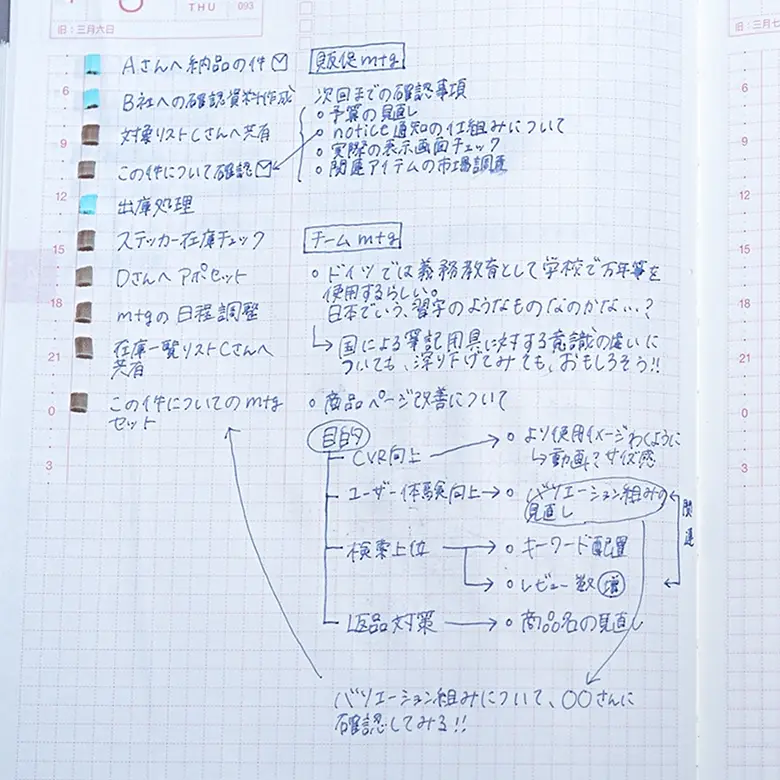 THU
093
旧：三月六日
Aさんへ納品の件
B社への確認資料作成
対象リストCさんへ共有
この件について確認
出庫処理
ステッカー在庫チェック
Dさんへアポセット
mtgの日程調整
在庫一覧リストCさんへ
共有
この件についてのmtg
セット
6
9
12
15
18
21
0
3
販促mtg
次回までの確認事項
○予算の見直し
○notice通知の仕組みについて
○実際の表示画面チェック
○関連アイテムの市場調査
チームmtg
○ドイツでは義務教育として学校で万年筆を
使用するらしい。
日本でいう、習字のようなものなのかな…？
↳国による筆記用具に対する意識の違いに
ついても、深り下げてみても、おもしろそう!!
○商品ページ改善について
目的
CVR向上→○より使用イメージわくように
↳動画？サイズ感
ユーザー体験向上→○バリエーション組みの
見直し
関連
検索上位→○キーワード配置
→○レビュー数増
返品対策→○商品名の見直し
バリエーション組みについて、〇〇さんに
確認してみる!!
旧：三
6
9
12
15
18
21
0
3